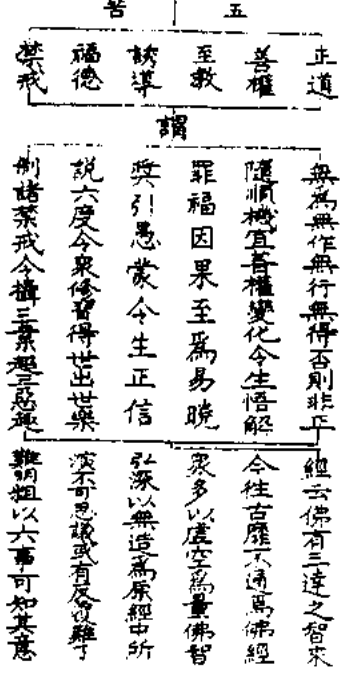 五
苦
正道
善權
至教
誘導
福德
禁戒
謂
無為無作無行無得否則非正
隨順機宜善權變化令生悟解
罪福因果至為易曉
奬引愚蒙令生正信
說六度令衆修習得世出世樂
制諸禁戒令攝三業超三惡趣
經云佛有三達之智來
今往古靡不通焉佛經
衆多以虛空為量佛智
弘深以無造為原經中所
演不可思議或有反覆難了
難明粗以六事可知其意